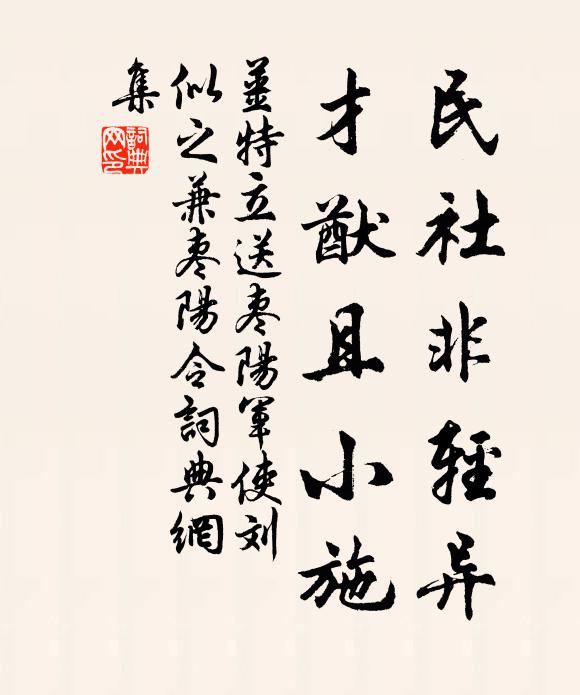 民社非輕异
才猷且小施
姜特立送枣陽軍使刘
似之兼枣陽令詞典網
集
詞典网印